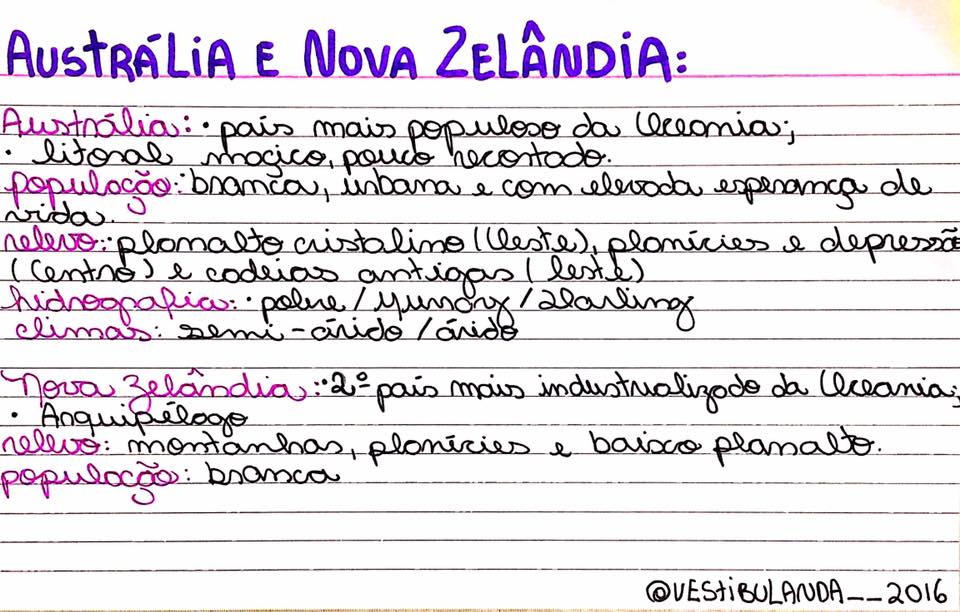 AUSTRÁLIA E NOVA ZELÂNDIA:
Austrália: • país mais populoso da Oceania;
• litoral maciço, pouco recortado.
população: branca, urbana e com elevada esperança de
vida.
relevo: planalto cristalino (Oeste), planícies e depressão
(Centro) e cadeias antigas (leste)
hidrografia: • pobre / Murray / Darling
climas: semi-árido / árido
Nova Zelândia: • 2º país mais industrializado da Oceania;
• Arquipélago
relevo: montanhas, planícies e baixo planalto.
população: branca
@VESTIBULANDA__2016